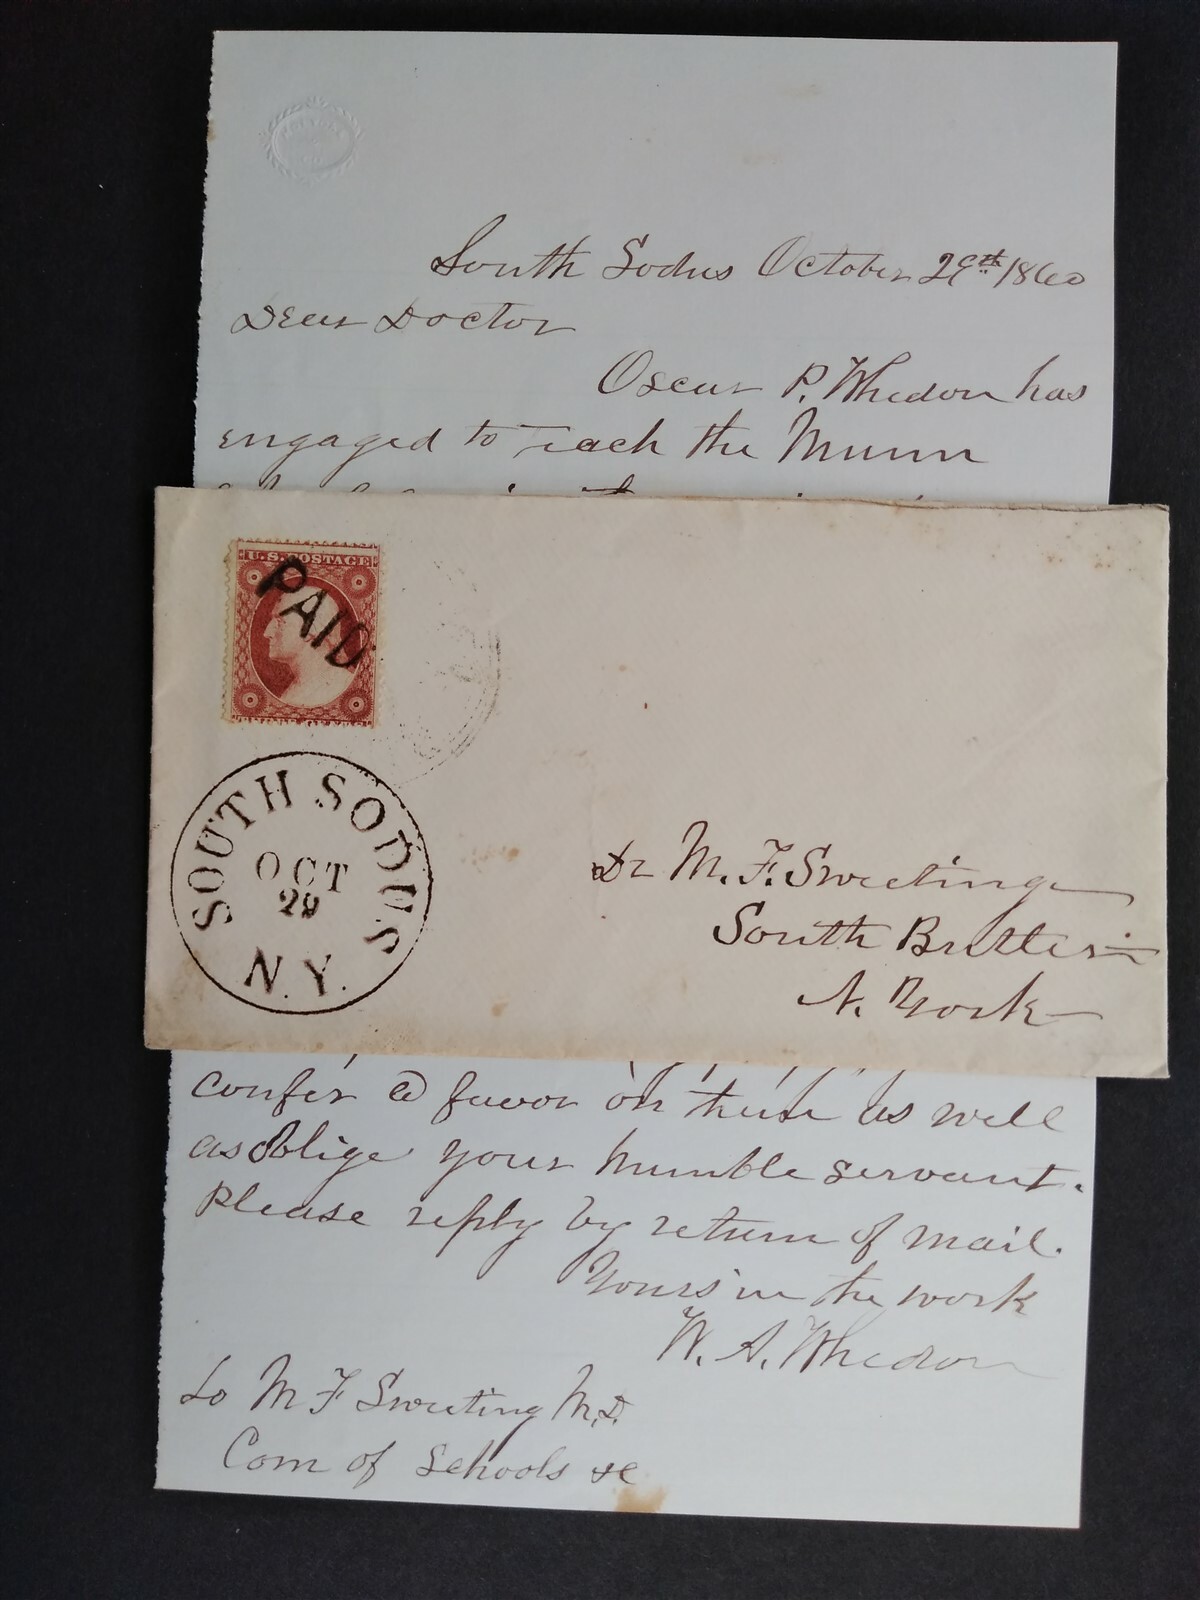 South Sodus October 29th 1860
Dear Doctor
Oscar P. Whedon has
engaged to teach the Munn
U.S. POSTAGE
PAID
THREE CENTS
SOUTH SODUS
OCT
29
N.Y.
Dr M. F. Sweeting
South Butler
N. York
confer a favor on them as well
as oblige your humble servant.
Please reply by return of mail.
Yours in the work
W. A. Whedon
To M F Sweeting M.D.
Com of Schools &c